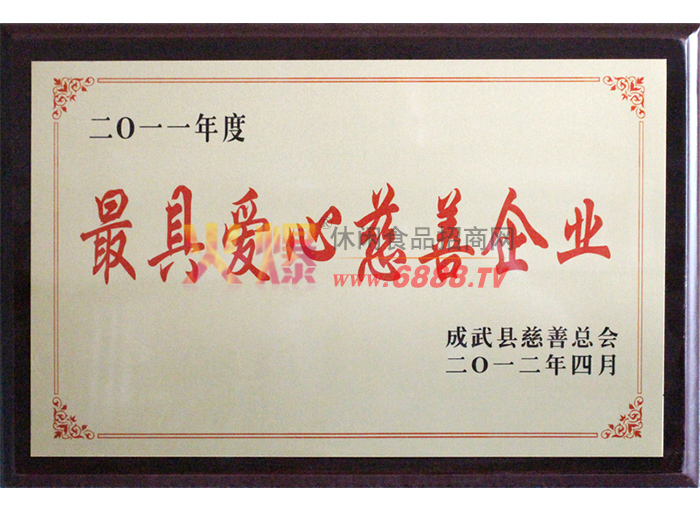 二〇一一年度
最具爱心慈善企业
火爆®休闲食品招商网
www.6888.TV
成武县慈善总会
二〇一二年四月